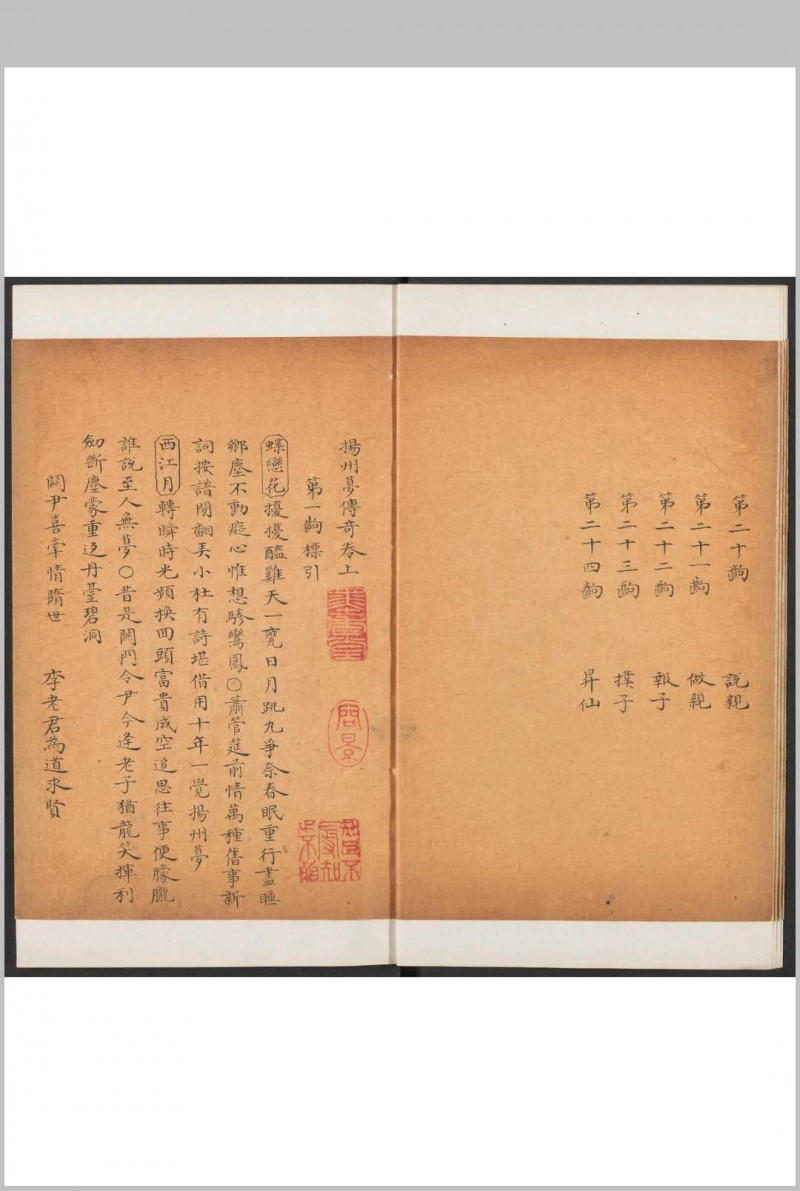 第二十齣 說親
第二十一齣 做親
第二十二齣 報子
第二十三齣 撲子
第二十四齣 昇仙
揚州夢傳奇卷上
第一齣標引
蝶戀花擾擾醯雞天一甕日月跳丸爭奈春眠重行盡睡
鄉塵不動癡心惟想驂鸞鳳〇蕭管筵前情萬種舊事新
詞按譜閒翻弄小杜有詩堪借用十年一覺揚州夢
西江月轉瞬時光頻換回頭富貴成空追思往事便朦朧
誰說至人無夢〇昔是関門令尹今逢老子猶龍笑揮利
劒斷塵蒙重返丹臺碧洞
関尹喜牽情隋世 李老君為道求賢